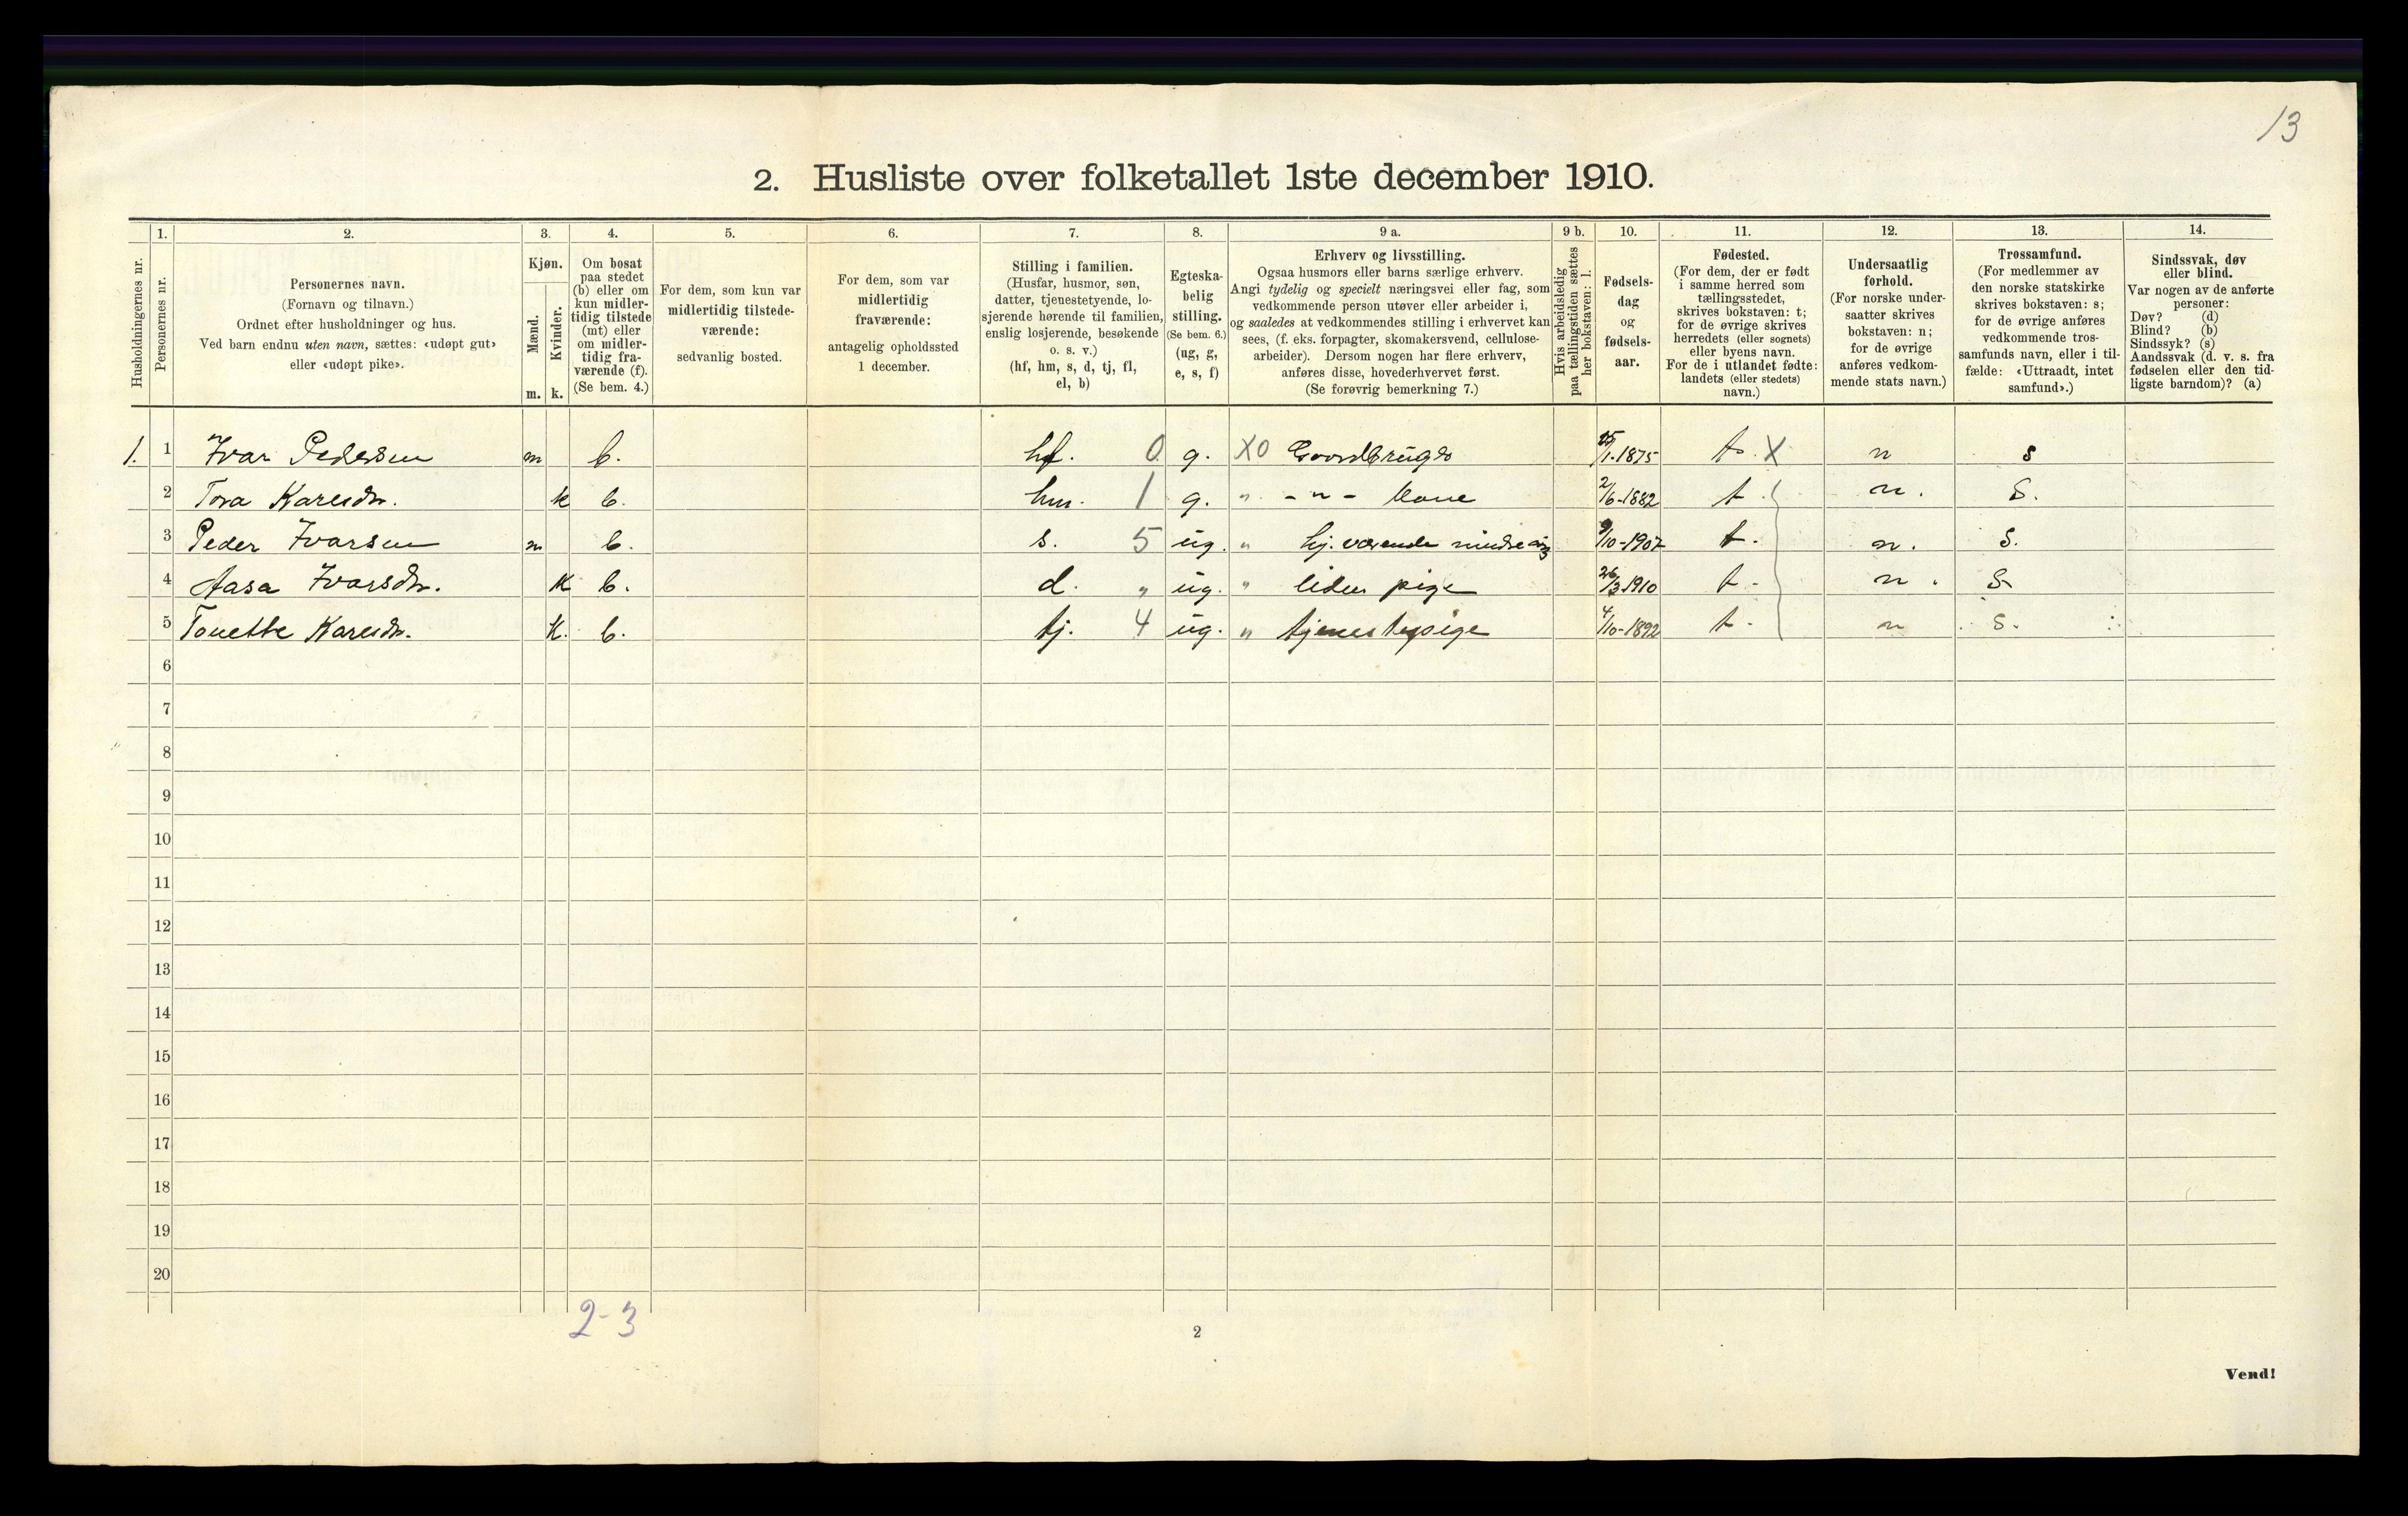 13
2. Husliste over folketallet 1ste december 1910.
Husholdningernes nr.
1.
Personernes nr.
2.
Personernes navn.
(Fornavn og tilnavn.)
Ordnet efter husholdninger og hus.
Ved barn endnu uten navn, sættes: «udøpt gut»
eller «udøpt pike».
3.
Kjøn.
Mænd.
Kvinder.
m. k.
4.
Om bosat
paa stedet
(b) eller om
kun midler-
tidig tilstede
(mt) eller
om midler-
tidig fra-
værende (f).
(Se bem. 4.)
5.
For dem, som kun var
midlertidig tilstede-
værende:
sedvanlig bosted.
6.
For dem, som var
midlertidig
fraværende:
antagelig opholdssted
1 december.
7.
Stilling i familien.
(Husfar, husmor, søn,
datter, tjenestetyende, lo-
sjerende hørende til familien,
enslig losjerende, besøkende
o. s. v.)
(hf, hm, s, d, tj, fl,
el, b)
8.
Egteska-
belig
stilling.
(Se bem. 6.)
(ug, g,
e, s, f)
9 a.
Erhverv og livsstilling.
Ogsaa husmors eller barns særlige erhverv.
Angi tydelig og specielt næringsvei eller fag, som
vedkommende person utøver eller arbeider i,
og saaledes at vedkommendes stilling i erhvervet kan
sees, (f. eks. forpagter, skomakersvend, cellulose-
arbeider). Dersom nogen har flere erhverv,
anføres disse, hovederhvervet først.
(Se forøvrig bemerkning 7.)
9 b.
Hvis arbeidsledig
paa tællingstiden sættes
her bokstaven: l.
10.
Fødsels-
dag
og
fødsels-
aar.
11.
Fødested.
(For dem, der er født
i samme herred som
tællingsstedet,
skrives bokstaven: t;
for de øvrige skrives
herredets (eller sognets)
eller byens navn.
For de i utlandet fødte:
landets (eller stedets)
navn.)
12.
Undersaatlig
forhold.
(For norske under-
saatter skrives
bokstaven: n;
for de øvrige
anføres vedkom-
mende stats navn.)
13.
Trossamfund.
(For medlemmer av
den norske statskirke
skrives bokstaven: s;
for de øvrige anføres
vedkommende tros-
samfunds navn, eller i til-
fælde: «Uttraadt, intet
samfund».)
14.
Sindssvak, døv
eller blind.
Var nogen av de anførte
personer:
Døv? (d)
Blind? (b)
Sindssyk? (s)
Aandssvak (d. v. s. fra
fødselen eller den tid-
ligste barndom)? (a)
1. 1 Ivar Pedersen m b. hf. 0 g. X0 Gaardbruger /1.1875 t. X n s
2 Tora Karesdtr. k b. hm. 1 g. " - " - Kone 2/6-1882 t. n. S.
3 Peder Ivarsen m b. s. 5 ug. " hj. værende 9/10-1907 t. n. S.
4 Aasa Ivarsdtr. k b. d. " ug. " liden pige 26/3 1910 t. n. S.
5 Tonette Karesdtr. k. b. tj. 4 ug. " tjenestepige 4/10-1892 t. n S.
6
7
8
9
10
11
12
13
14
15
16
17
18
19
20
2-3
2
Vend!